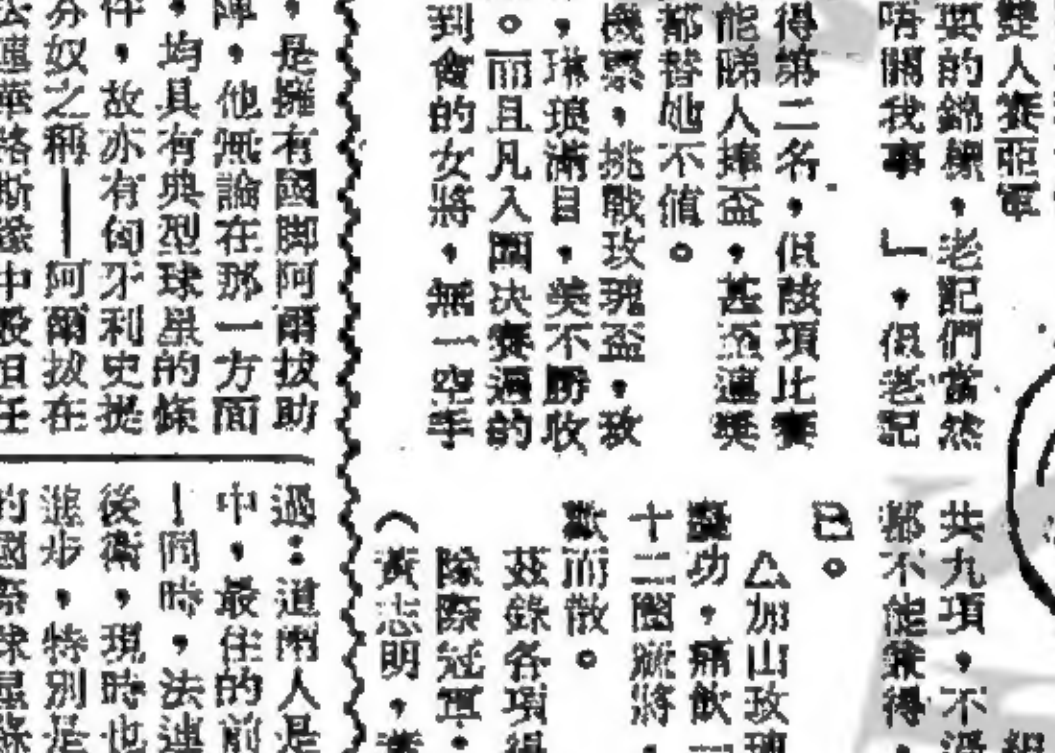 雙人賽亞軍
要的錦標，老記們當然
唔關我事」，但老記
得第二名，但該項比賽
能睇人捧盃，甚至連獎
都替她不值。
機票，挑戰玫瑰盃，故
，琳琅滿目，美不勝收
。而且凡入圍決賽過的
到會的女將，無一空手
共九項，不
都不能兼得，
已。
△加山玫瑰
慶功，痛飲一
十二圍，將
歡而散。
茲錄各項
際冠軍：
（黃志明，
，是擁有國脚阿爾拔助
陣，他無論在那一方面
，均具有典型球星的條
件，故亦有匈牙利史提
芬奴之稱——阿爾拔在
中設但任
過：道兩人是
中，最佳的前
—同時，法連
後衞，現時也
進步，特別是
的國際球星